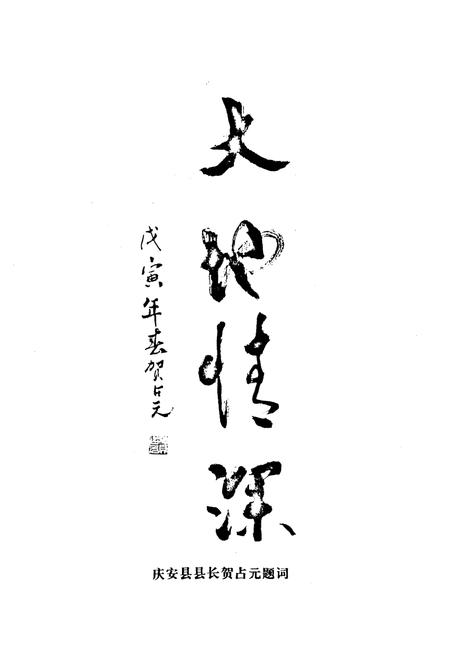 大地情深
戊寅年春贺占元
庆安县县长贺占元题词